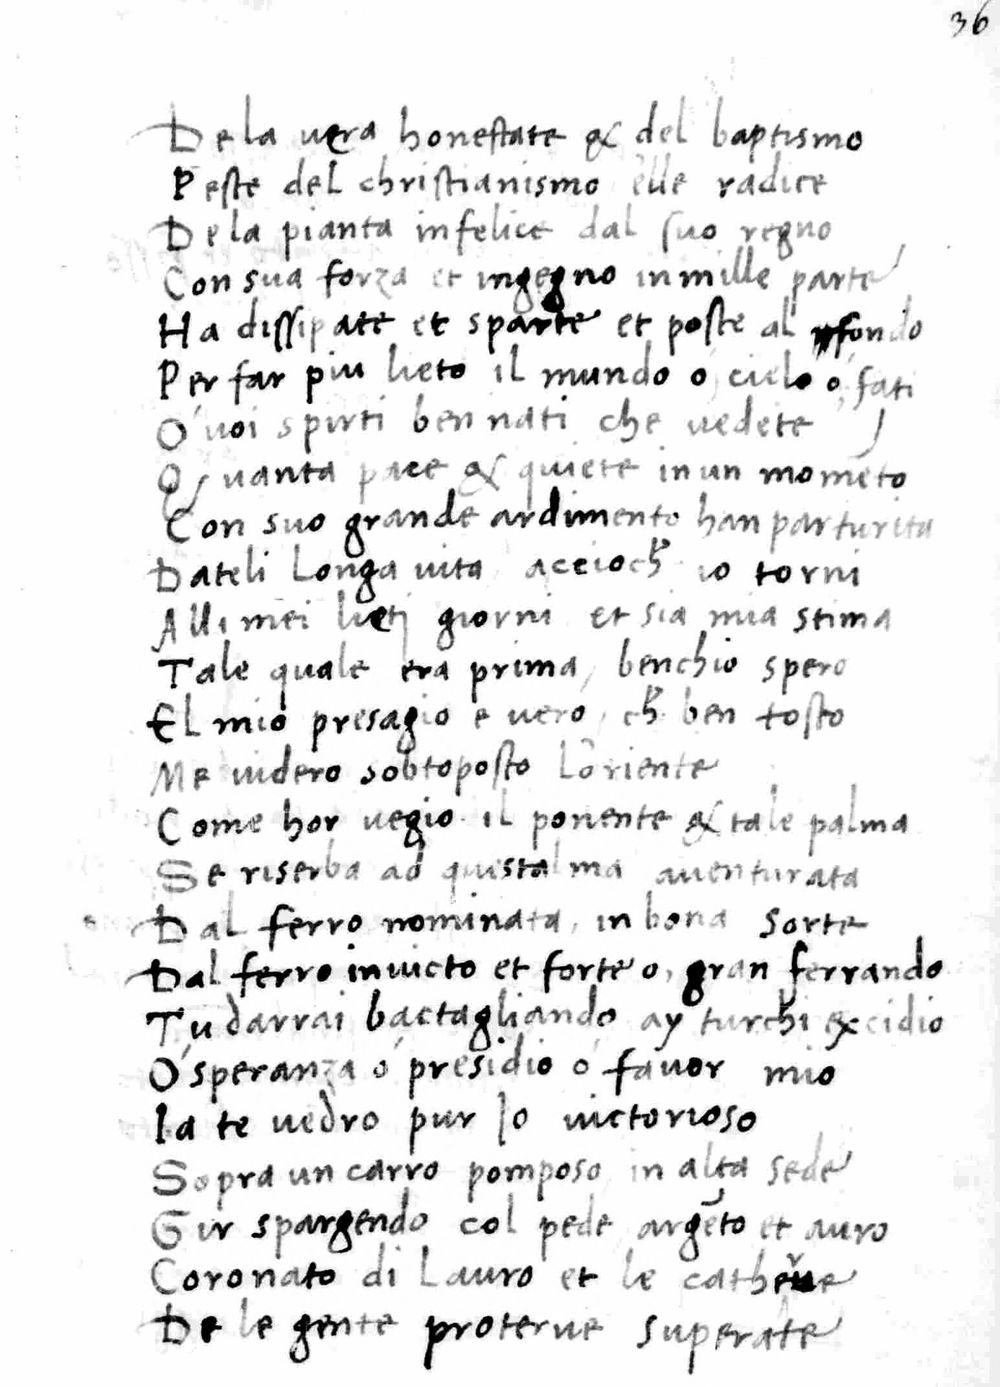 36
De la vera honestate & del baptismo
Peste del christianismo elle radice
De la pianta infelice dal suo regno
Con sua forza et ingegno in mille parte
Ha dissipate et sparte et poste al fondo
Per far piu lieto il mundo ó cielo ó fati
O' voi spirti ben nati che vedete
Quanta pace & quiete in un momēto
Con suo grande ardimento han parturita
Dateli Longa vita accioch̄ io torni
Alli mei lieti giorni et sia mia stima
Tale quale era prima, benchio spero
El mio presagio e vero, ch̄ ben tosto
Me videro sobtoposto Loriente
Come hor vegio il ponente & tale palma
Se riserba ad questalma aventurata
Dal ferro nominata, in bona sorte
Dal ferro invicto et forte o, gran ferrando
Tu darrai bactagliando ay turchi excidio
O' speranza ó presidio ó favor mio
Ia te vedro pur Io victorioso
Sopra un carro pomposo in alta sede
Gir spargendo col pede argēto et auro
Coronato di Lauro et le catherve
De le gente proterve superate